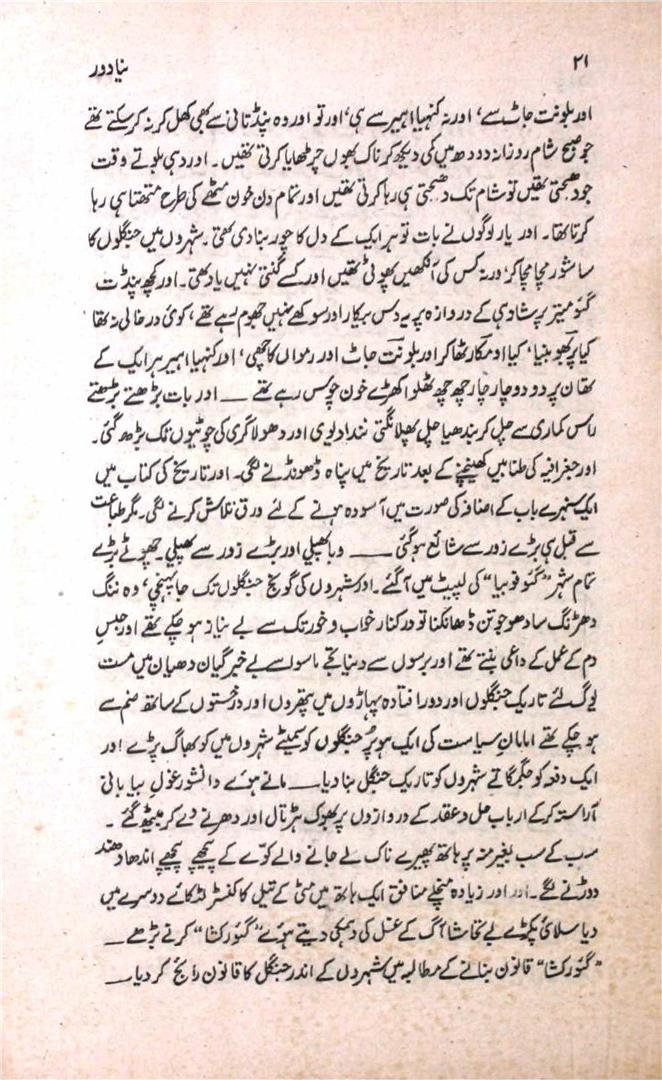 ۲۱
نیا دور
اور بلونت جاٹ سے، اور نہ کنہیا اہیر سے ہی، اور تو اور وہ پنڈتانی سے بھی کھل کر نہ کر سکتے تھے
جو صبح شام روزانہ دودھ میں کی دیکھ کر ناک بھوں چڑھایا کرتی تھیں۔ اور دہی بلوتے وقت
جو دھجتی تھیں تو شام تک دھجتی ہی رہا کرتی تھیں اور تمام دن خون مٹھے کی طرح متھتا ہی رہا
کرتا تھا۔ اور یار لوگوں نے بات تو ہر ایک کے دل کا چور بنا دی تھی۔ شہروں میں جنگلوں کا
سا شور مچا مچا کر، ورنہ کس کی آنکھیں پھوٹی تھیں اور کسے گنتی نہیں یاد تھی۔ اور کچھ پنڈت
گئو میتر پرشاد ہی کے دروازہ پر یہ دس بیکار اور سوکھے نہیں جھوم رہے تھے، کوئی در خالی نہ تھا
کیا پربھو بنیا، کیا اومکار ٹھاکر اور بلونت جاٹ اور رمواں کاچھی، اور کنہیا اہیر ہر ایک کے
تھان پر دو دو چار چار چھ چھ ٹھلوا کھڑے خون چوس رہے تھے —— اور بات بڑھتے بڑھتے
راس کماری سے چل کر بندھیا چل پھلانگتی نندا دیوی اور دھولا گری کی چوٹیوں تک بڑھ گئی۔
اور جغرافیہ کی طنابیں کھینچنے کے بعد تاریخ میں پناہ ڈھونڈنے لگی۔ اور تاریخ کی کتاب میں
ایک سنہرے باب کے اضافہ کی صورت میں آسودہ ہونے کے لئے ورق تلاش کرنے لگی۔ مگر طباعت
سے قبل ہی بڑے زور سے شائع ہو گئی —— وبا پھیلی اور بڑے زور سے پھیلی۔ چھوٹے بڑے
تمام شہر "گئو فوبیا" کی لپیٹ میں آ گئے۔ اور شہروں کی گونج جنگلوں تک جا پہنچی، وہ ننگ
دھڑنگ سادھو جو تن ڈھانکنا تو درکنار خواب و خور تک سے بے نیاز ہو چکے تھے اور حبسِ
دم کے عمل کے داعی بنتے تھے اور برسوں سے دنیا تجے ماسوا سے بے خبر گیان دھیان میں مست
لوگ لئے تاریک جنگلوں اور دور افتادہ پہاڑوں میں پتھروں اور درختوں کے ساتھ ضم سے
ہو چکے تھے امامانِ سیاست کی ایک ہو پر جنگلوں کو سمیٹے شہروں میں کو بھاگ پڑے! اور
ایک دفعہ کو جگمگاتے شہروں کو تاریک جنگل بنا دیا —— مانے ہوئے دانشور غولِ بیابانی
آراستہ کر کے اربابِ حل و عقد کے دروازوں پر بھوک ہڑتال اور دھرنے دے کر بیٹھ گئے۔
سب کے سب بغیر منہ پر ہاتھ پھیرے ناک لے جانے والے کوّے کے پیچھے پیچھے اندھا دھند
دوڑنے لگے۔ اور اور زیادہ منچلے منافق ایک ہاتھ میں مٹی کے تیل کا کنسٹر لٹکائے دوسرے میں
دیا سلائی پکڑے بے تحاشا آگ کے غسل کی دھمکی دیتے ہوئے "گئو رکشا" کرنے بڑھے ——
"گئو رکشا" قانون بنانے کے مطالبہ میں شہروں کے اندر جنگل کا قانون رائج کر دیا ——